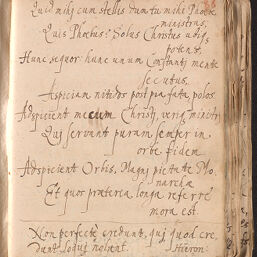 Quid mihi cum stellis tum tu mihi Phœbe
ministras.
Quis Phœbus? Solus Christus ubiq
potens.
Hunc sequor hunc unum Constanti mente
secutus,
Aspiciam nitidos post pia fata polos
Adspicient mecum Christi, veriq ministri
Qui servant puram semper in
orbe fidem
Adspicient Orbis, Magni pietate Mo,
narchæ
Et quos præterea longa referre
mora est.
Non perfecte credunt, qui quod cre,
dunt loqui noluint. Hieron: